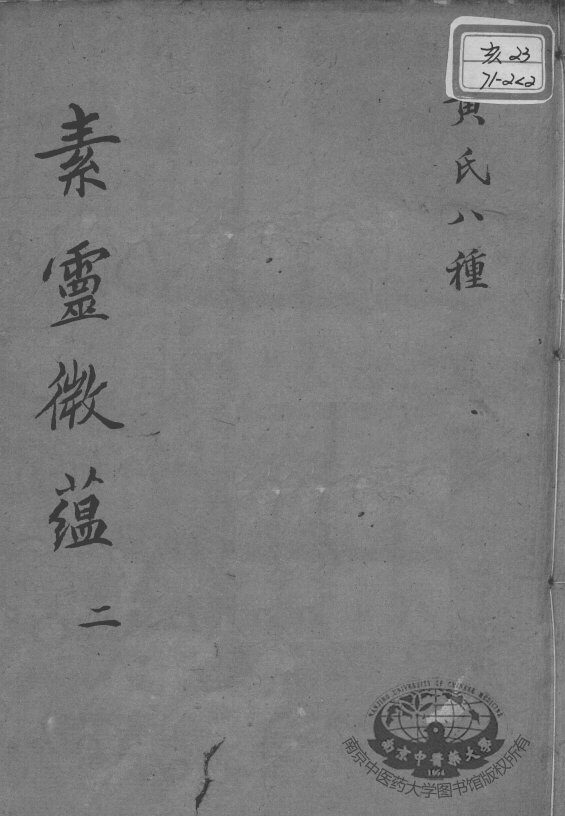 亥23
71-2<2
黄氏八種
素靈微蕴
二
NANJING UNIVERSITY OF CHINESE MEDICINE
南京中醫藥大學
1954
南京中医药大学图书馆版权所有